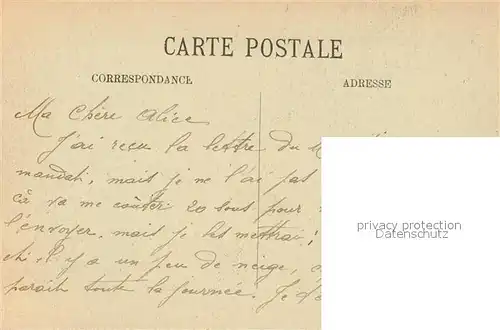 CARTE POSTALE
CORRESPONDANCE
ADRESSE
Ma Chère Alice
J'ai reçu la lettre du
mandat, mais je ne l'ai pas
çà va me coûter 20 sous pour
l'envoyer, mais je les mettrai
il y a un peu de neige,
parait toute la journée. Je
privacy protection
Datenschutz